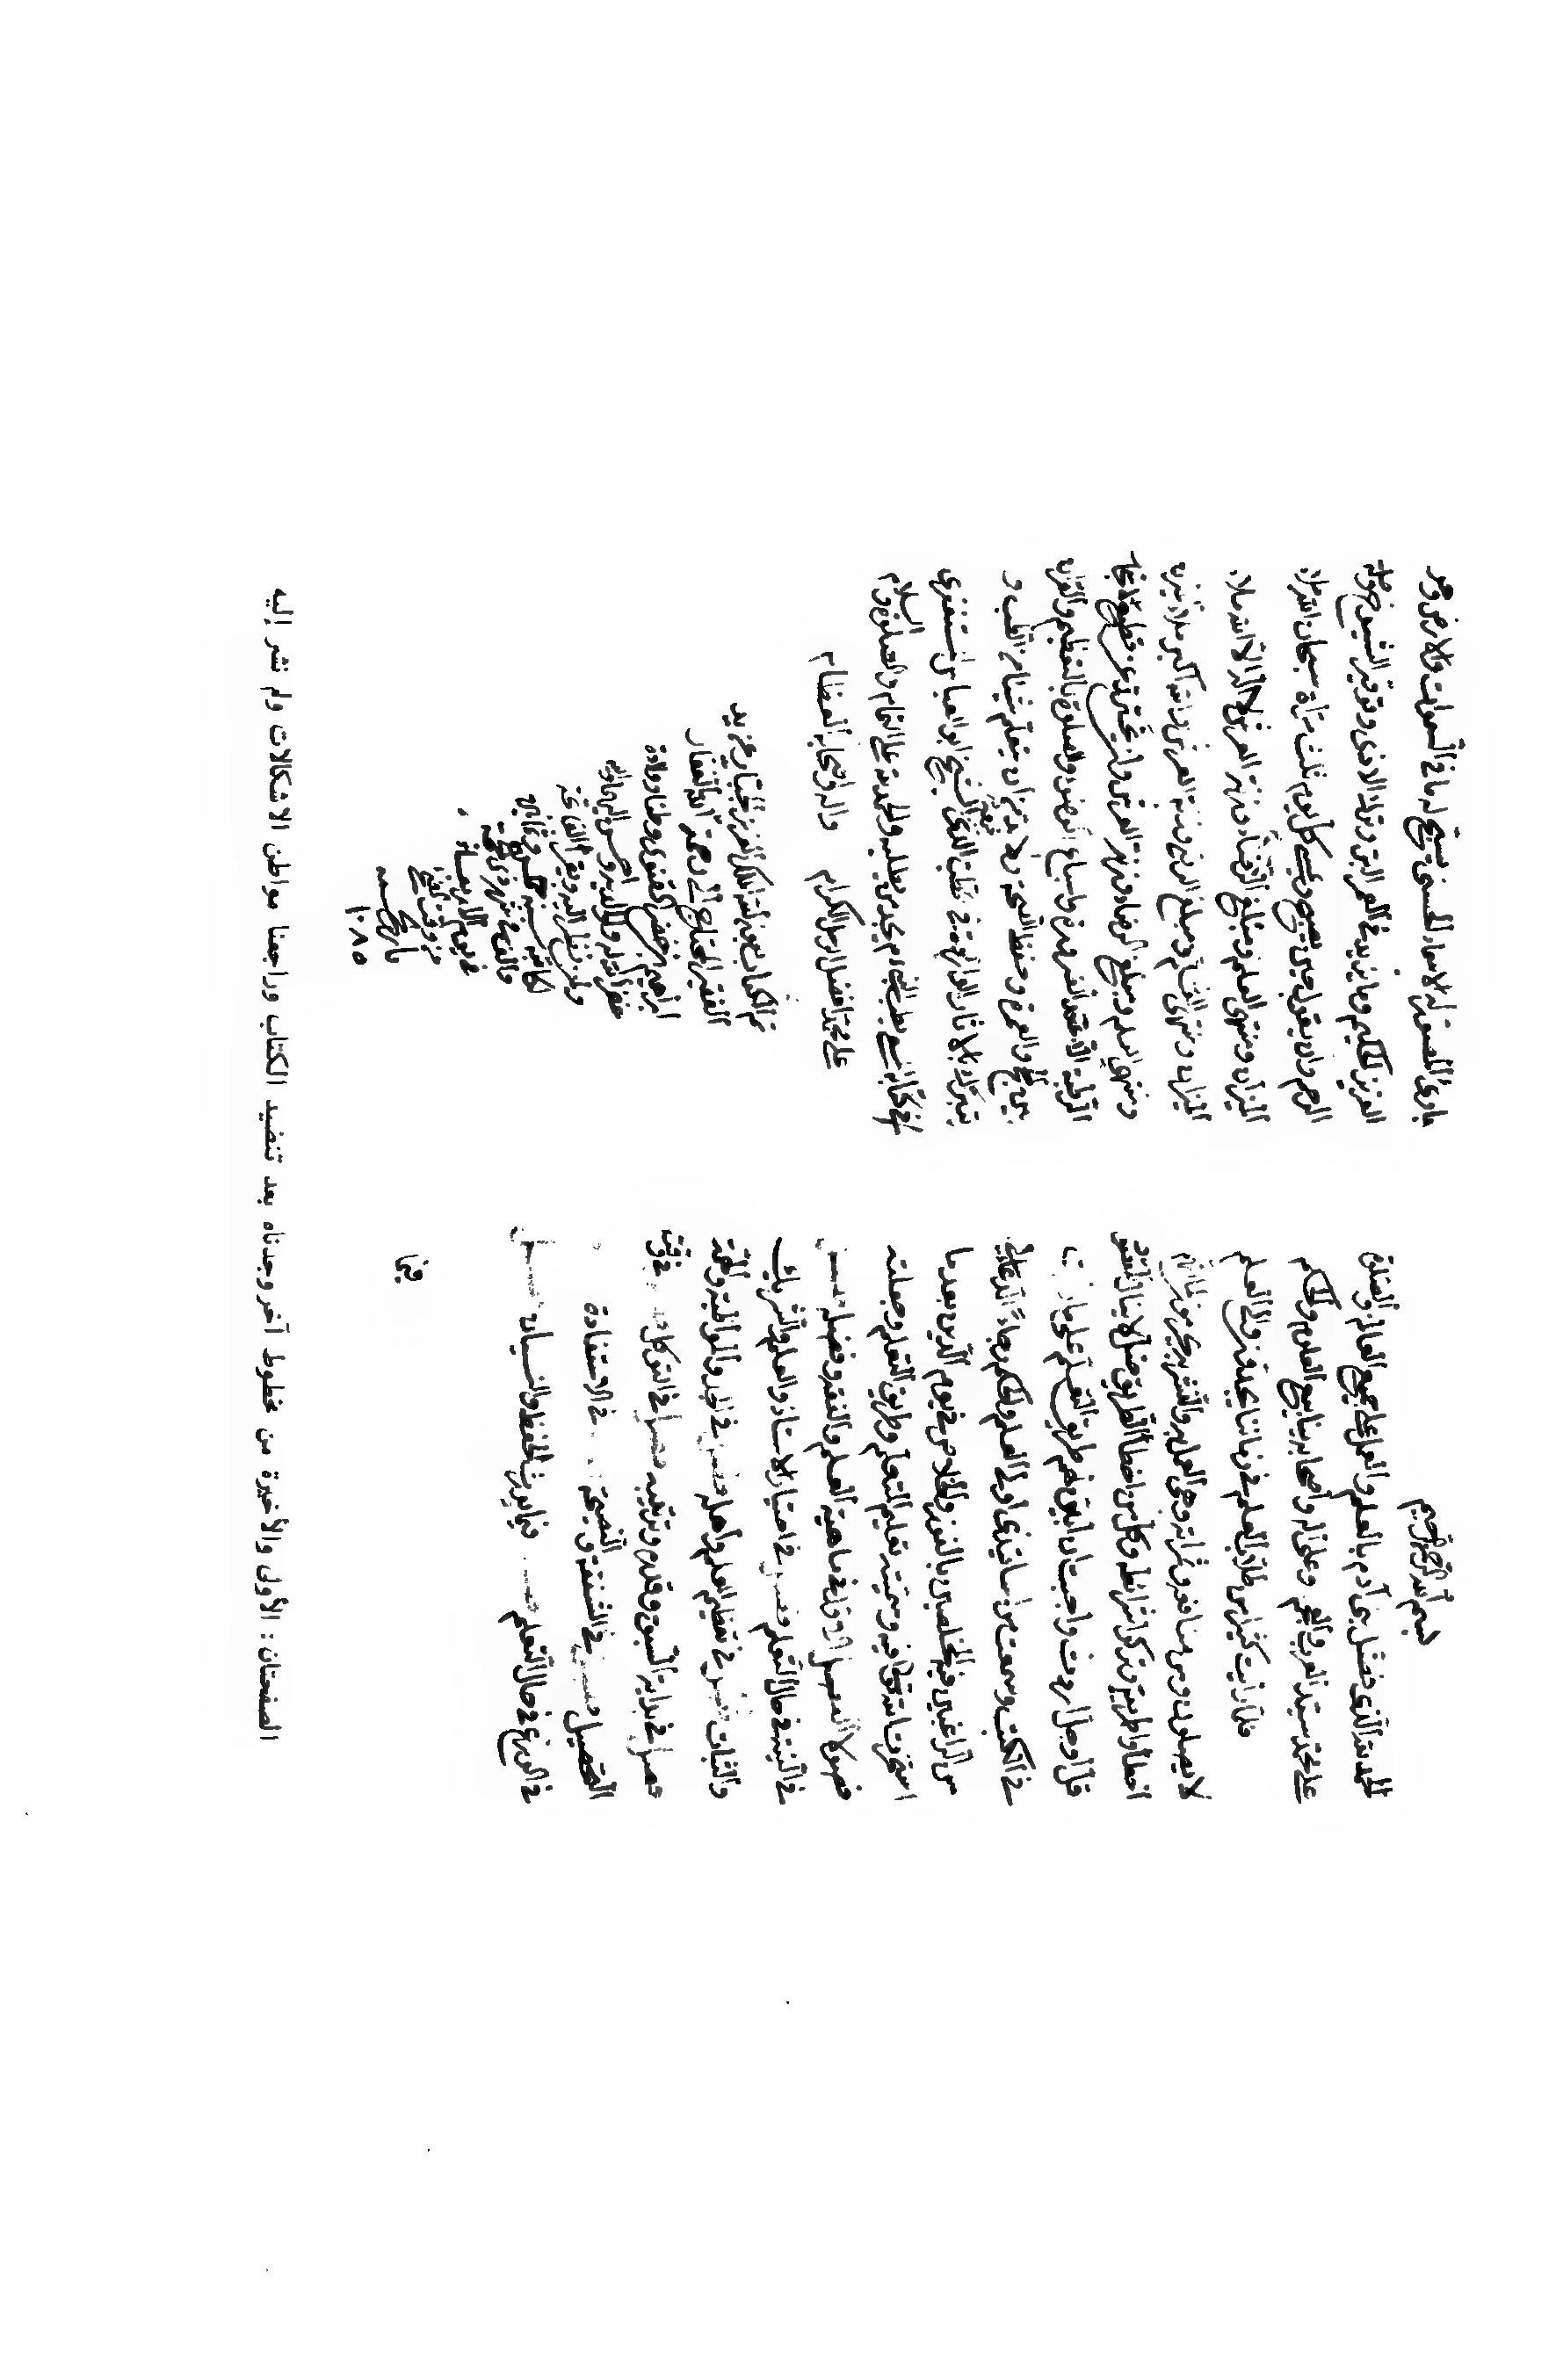 بسم الله الرحمن الرحيم
الحمد لله الذى فضل بنى آدم بالعلم والعمل على جميع العالم والصلوة
على محمد سيد العرب والعجم وعلى آله وأصحابه ينابيع العلوم والحكم
فلما رايت كثيرا من طلاب العلم فى زماننا يجدون الى العلم
لا يصلون ومن منافعه وثمراته وهى العمل به والنشر يحرمون لما انهم
اخطأوا طريقه وتركوا شرائطه وكل من اخطأ الطريق ضل ولا ينال المقصود
قل او جل اردت واحببت ان ابين لهم طريق التعلم على ما رايت
فى الكتب وسمعت من اساتيذى اولى العلم والحكم رجاء الدعاء لى
من الراغبين فيه المخلصين بالفوز والخلاص فى يوم الدين بعد ما
استخرت الله تعالى فيه وسميته تعليم المتعلم طريق التعلم وجعلته
فصولا الفصل الاول فى ماهية العلم والفقه وفضله فصل
فى النية فى حال التعلم فصل فى اختيار الاستاذ والعلم والشريك
والثبات فصل فى تعظيم العلم واهله فصل فى الجد والمواظبة والهمة
فصل فى بداية السبق وقدره وترتيبه فصل فى التوكل فصل فى وقت
التحصيل فصل فى الشفقة والنصيحة فى الاستفادة
فى الورع فى حال التعلم فصل فيما يورث الحفظ والنسيان فصل
فيما
بارئ المصور له الاسماء الحسنى يسبح له ما فى السموات والارض وهو
العزيز الحكيم وما يزيد فى العمر البر وترك الاذى وتوقير الشيوخ وصلة
الرحم وان يقول حين يصبح ويمسى كل يوم ثلث مرات سبحان الله ملاء
الميزان ومنتهى العلم ومبلغ الرضاء وزنة العرش ولا اله الا الله ملاء
الميزان ومنتهى العلم ومبلغ الرضى وزنة العرش والله اكبر ملاء الميزان
ومنتهى العلم ومبلغ الرضاء وزنة العرش وان يتحرز عن قطع الاشجار
الرطبة الا عند الضرورة واسباغ الوضوء والصلوة بالتعظيم والقران
بين الحج والعمرة وحفظ الصحة ولا بد من ان يتعلم شيئا من الطب و
يتبرك بالاثار الواردة فى الطب الذى جمعه الشيخ ابو العباس المستغفرى
فى كتابه المسمى بطب النبى عم يجده من يطلبه والحمد لله على التمام والصلوة والسلام
على محمد افضل الرسل الكرام واله واصحابه العظام
تم الكتاب بعون الله الملك العزيز الجبار عن يد
الفقير المحتاج الى رحمة الله الغفار
ابراهيم بن خضر وطنا وولادة
غفر الله له ولوالديه واحسن اليهما واليه
ولمن نظر اليه ويقرأ الفاتحة
لكاتبه سنة خمس وثمانين
والف من شهر ذى الحجة
فى يوم الاربعاء
من وقت الضحى
تاريخ سنه
١٠٨٥
الصفحتان : الأولى والأخيرة من مخطوط آخر وجدناه بعد تنضيد الكتاب وراجعنا مواطن الاشكالات ولم نشر إليه